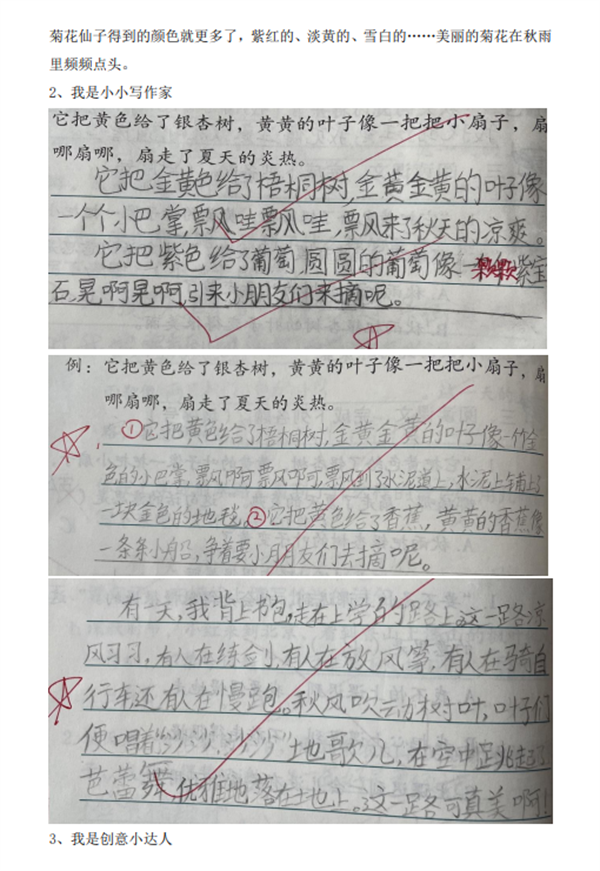 菊花仙子得到的颜色就更多了，紫红的、淡黄的、雪白的……美丽的菊花在秋雨
里频频点头。
2、我是小小写作家
它把黄色给了银杏树，黄黄的叶子像一把把小扇子，扇
哪扇哪，扇走了夏天的炎热。
它把金黄色给了梧桐树,金黄金黄的叶子像
一个个小巴掌,飘哇飘哇,飘来了秋天的凉爽。
它把紫色给了葡萄,圆圆的葡萄像颗颗紫宝
石,晃啊晃啊,引来小朋友们来摘呢。
例：它把黄色给了银杏树，黄黄的叶子像一把把小扇子，扇
哪扇哪，扇走了夏天的炎热。
①它把黄色给了梧桐树,金黄金黄的叶子像一个金
色的小巴掌,飘啊飘啊,飘到了水泥道上,水泥上铺上了
一块金色的地毯。②它把黄色给了香蕉，黄黄的香蕉像
一条条小船,争着要小朋友们去摘呢。
有一天,我背上书包,走在上学的路上。这一路凉
风习习,有人在练剑,有人在放风筝,有人在骑自
行车还有人在慢跑。秋风吹动树叶,叶子们
便唱着“沙沙,沙沙”地歌儿,在空中跳起了
芭蕾舞,优雅地落在土地上。这一路可真美啊!
3、我是创意小达人